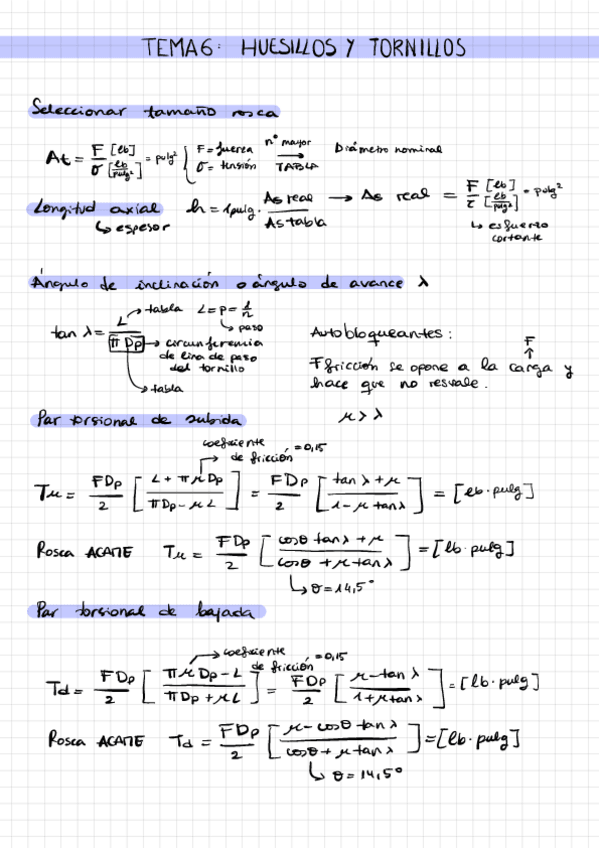 TEMA 6: HUESILLOS Y TORNILLOS
Seleccionar tamaño rosca
At = F [lb] / σ [lb/pulg²] = pulg² { F = fuerza σ = tensión nº mayor → TABLA Diámetro nominal
Longitud axial h = 1pulg · As real / As tabla → As real = F [lb] / τ [lb/pulg²] = pulg²
↳ espesor ↳ esfuerzo cortante
Ángulo de inclinación o ángulo de avance λ
tan λ = L / π Dp → tabla L = p = 1/n
↳ paso
→ circunferencia de linea de paso del tornillo
↳ tabla
Autobloqueantes:
F
↑
F fricción se opone a la carga y
hace que no resvale.
μ > λ
Par torsional de subida
coeficiente de fricción = 0,15
Tu = FDp/2 [ L + π μ Dp / π Dp - μ L ] = FDp/2 [ tan λ + μ / 1 - μ tan λ ] = [lb · pulg]
Rosca ACME Tu = FDp/2 [ cosθ tan λ + μ / cosθ + μ tan λ ] = [lb · pulg]
↳ θ = 14,5°
Par torsional de bajada
coeficiente de fricción = 0,15
Td = FDp/2 [ π μ Dp - L / π Dp + μ L ] = FDp/2 [ μ - tan λ / 1 + μ tan λ ] = [lb · pulg]
Rosca ACME Td = FDp/2 [ μ - cosθ tan λ / cosθ + μ tan λ ] = [lb · pulg]
↳ θ = 14,5°